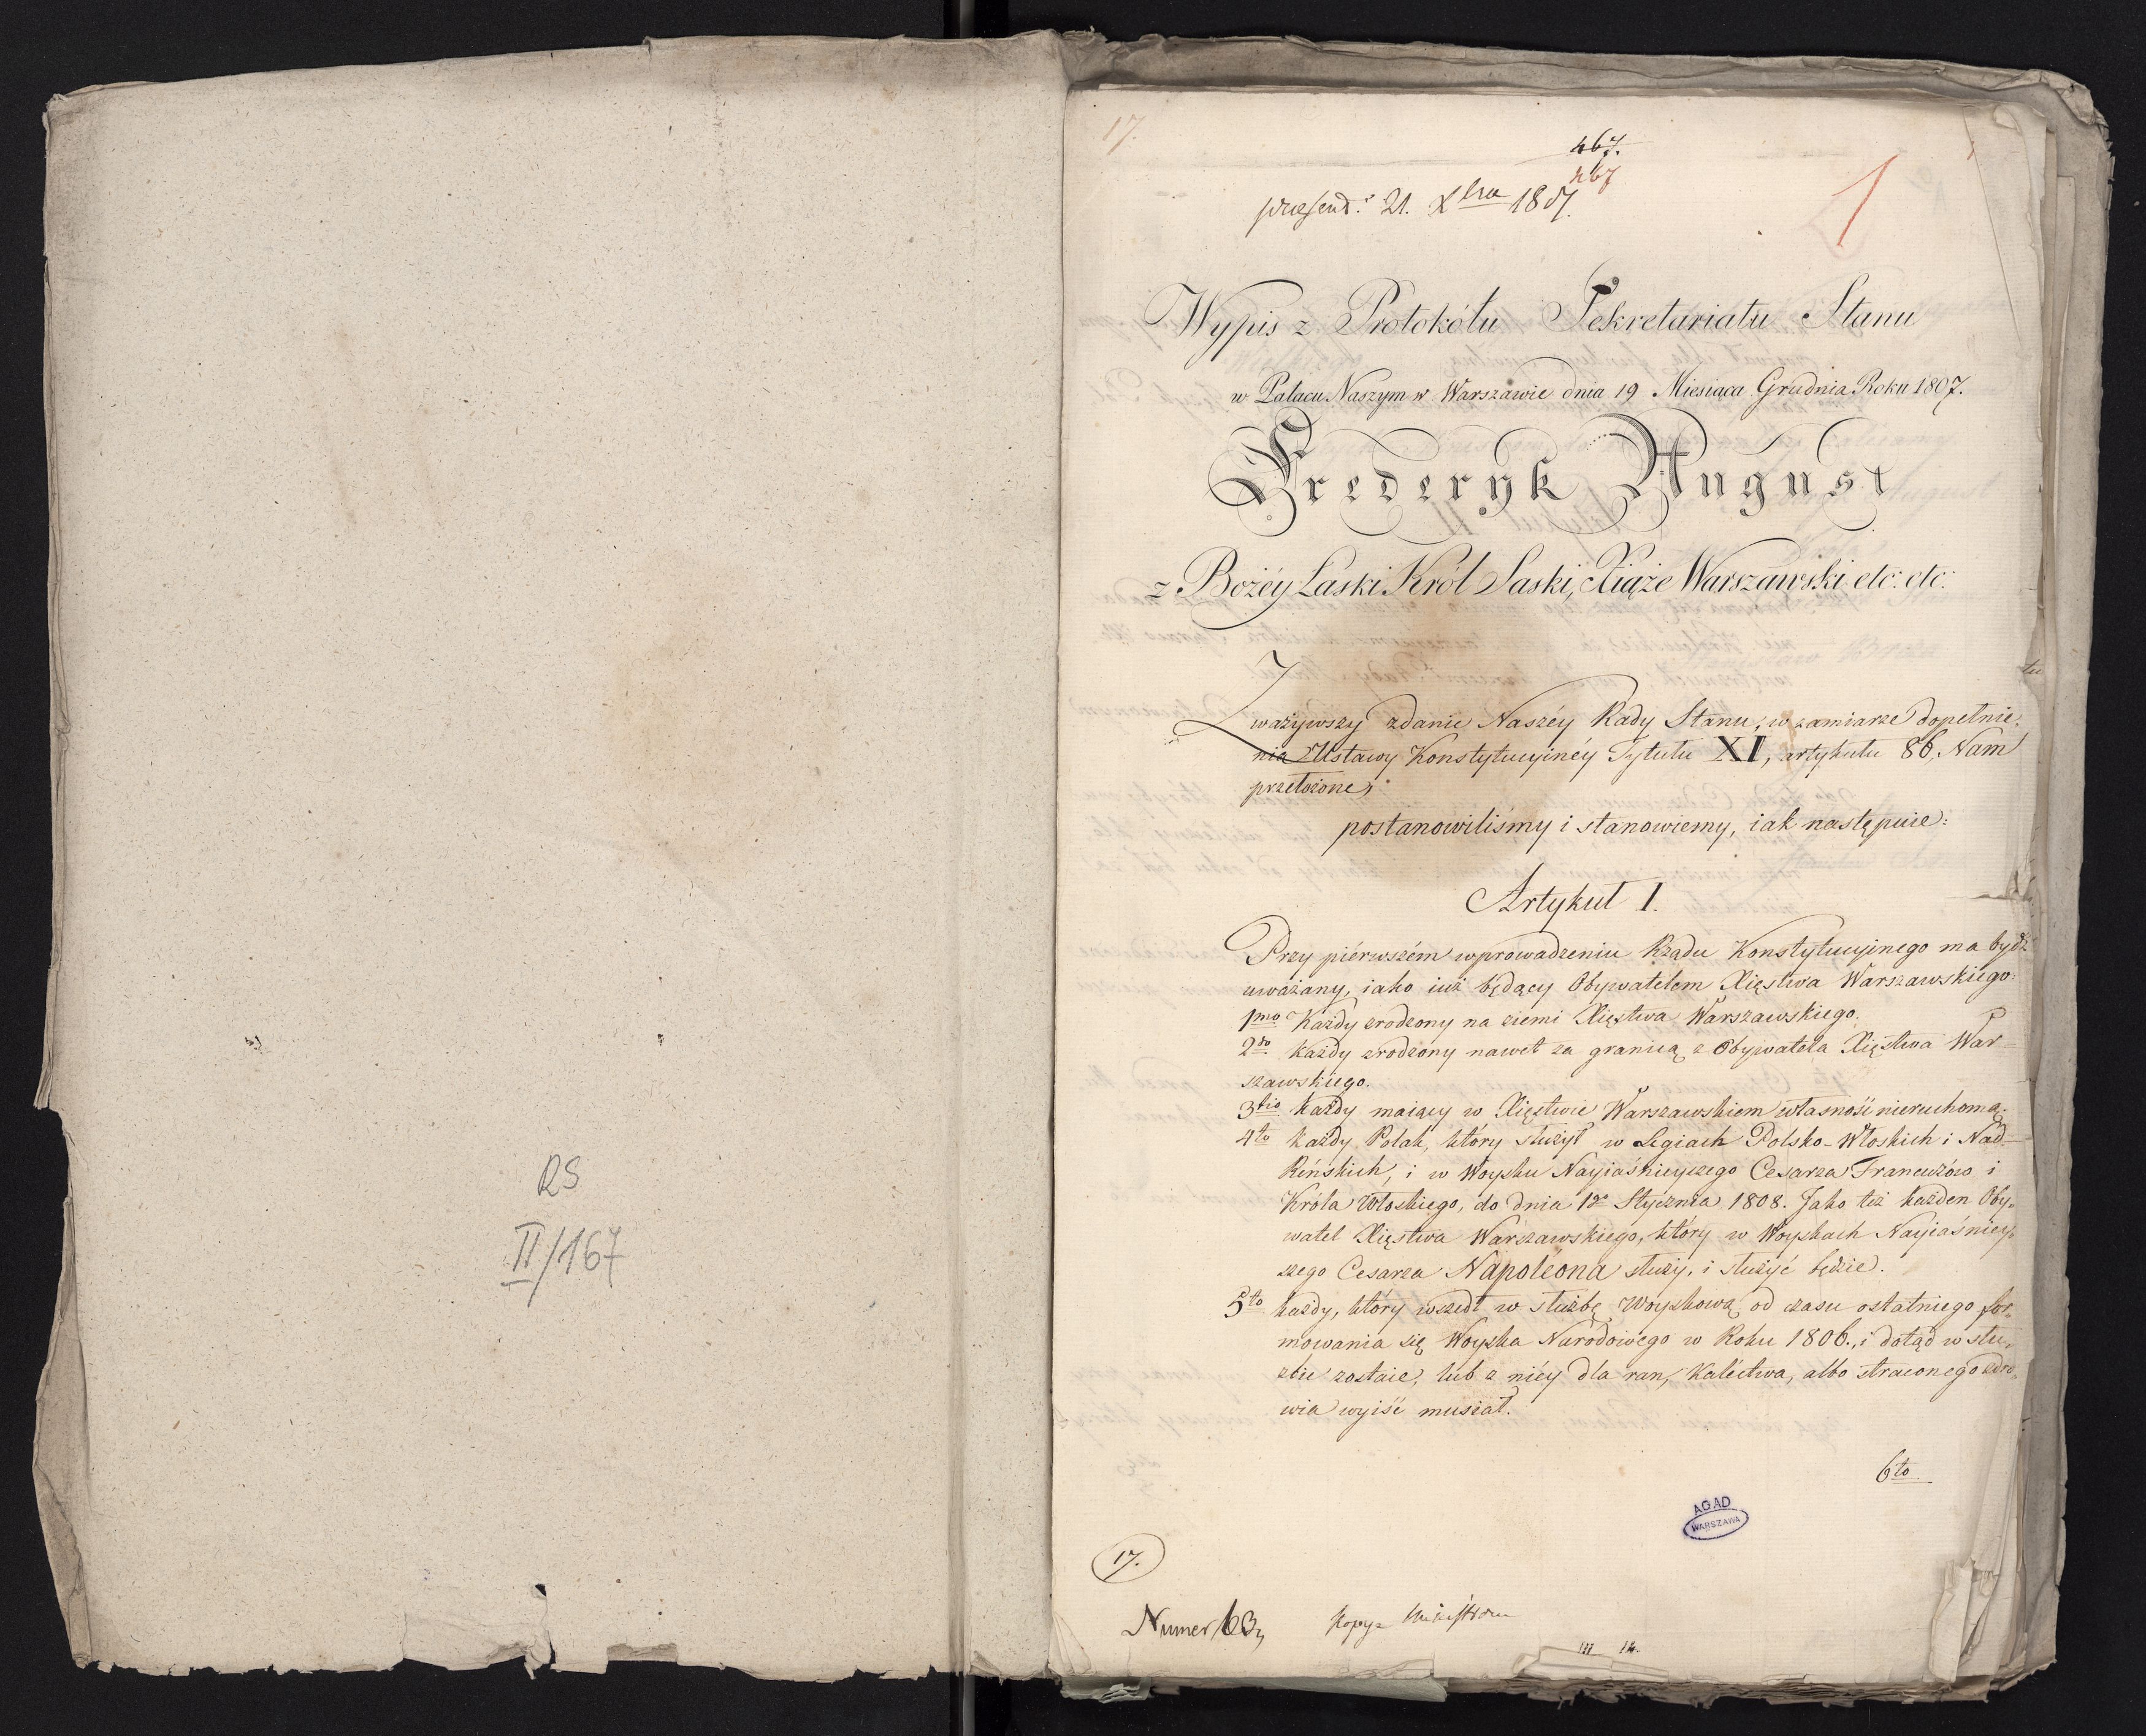 RS
II/167
17.
467.
467
1
praesent: 21. Xbra 1807.
Wypis z Protokółu Sekretariatu Stanu
w Pałacu Naszym w Warszawie dnia 19 Miesiąca Grudnia Roku 1807.
Frederyk August
z Bożéy Łaski Król Saski, Xiąże Warszawski etc: etc:
Zważywszy zdanie Naszéy Rady Stanu, w zamiarze dopełnie-
nia Ustawy Konstytucyinéy Tytułu XI, artykułu 86, Nam
przełożone,
postanowiliśmy i stanowiemy, iak następuie:
Artykuł I.
Przy piérwszém wprowadzeniu Rządu Konstytucyinego ma bydź
uważany, iako iuż będący Obywatelem Xięstwa Warszawskiego:
1mo Każdy zrodzony na ziemi Xięstwa Warszawskiego.
2do każdy zrodzony nawet za granicą z Obywatela Xięstwa War-
szawskiego.
3tio każdy maiący w Xięstwie Warszawskiem własność nieruchomą.
4to każdy Polak, który służył w Legiach Polsko-Włoskich i Nad-
Reńskich, i w Woysku Nayiaśnieyszego Cesarza Francuzów i
Króla Włoskiego, do dnia 1go Stycznia 1808. Jako też każden Oby-
watel Xięstwa Warszawskiego, który w Woyskach Nayiaśniey-
szego Cesarza Napoleona służy, i służyć będzie.
5to każdy, który wszedł w służbę Woyskową od czasu ostatniego for-
mowania się Woyska Narodowego w Roku 1806., i dotąd w słu-
zbie zostaie, lub z niéy dla ran, kaléctwa, albo straconego zdro-
wia wyiść musiał.
6to
AGAD
WARSZAWA
17.
Numer 63
Kopya
III 14.